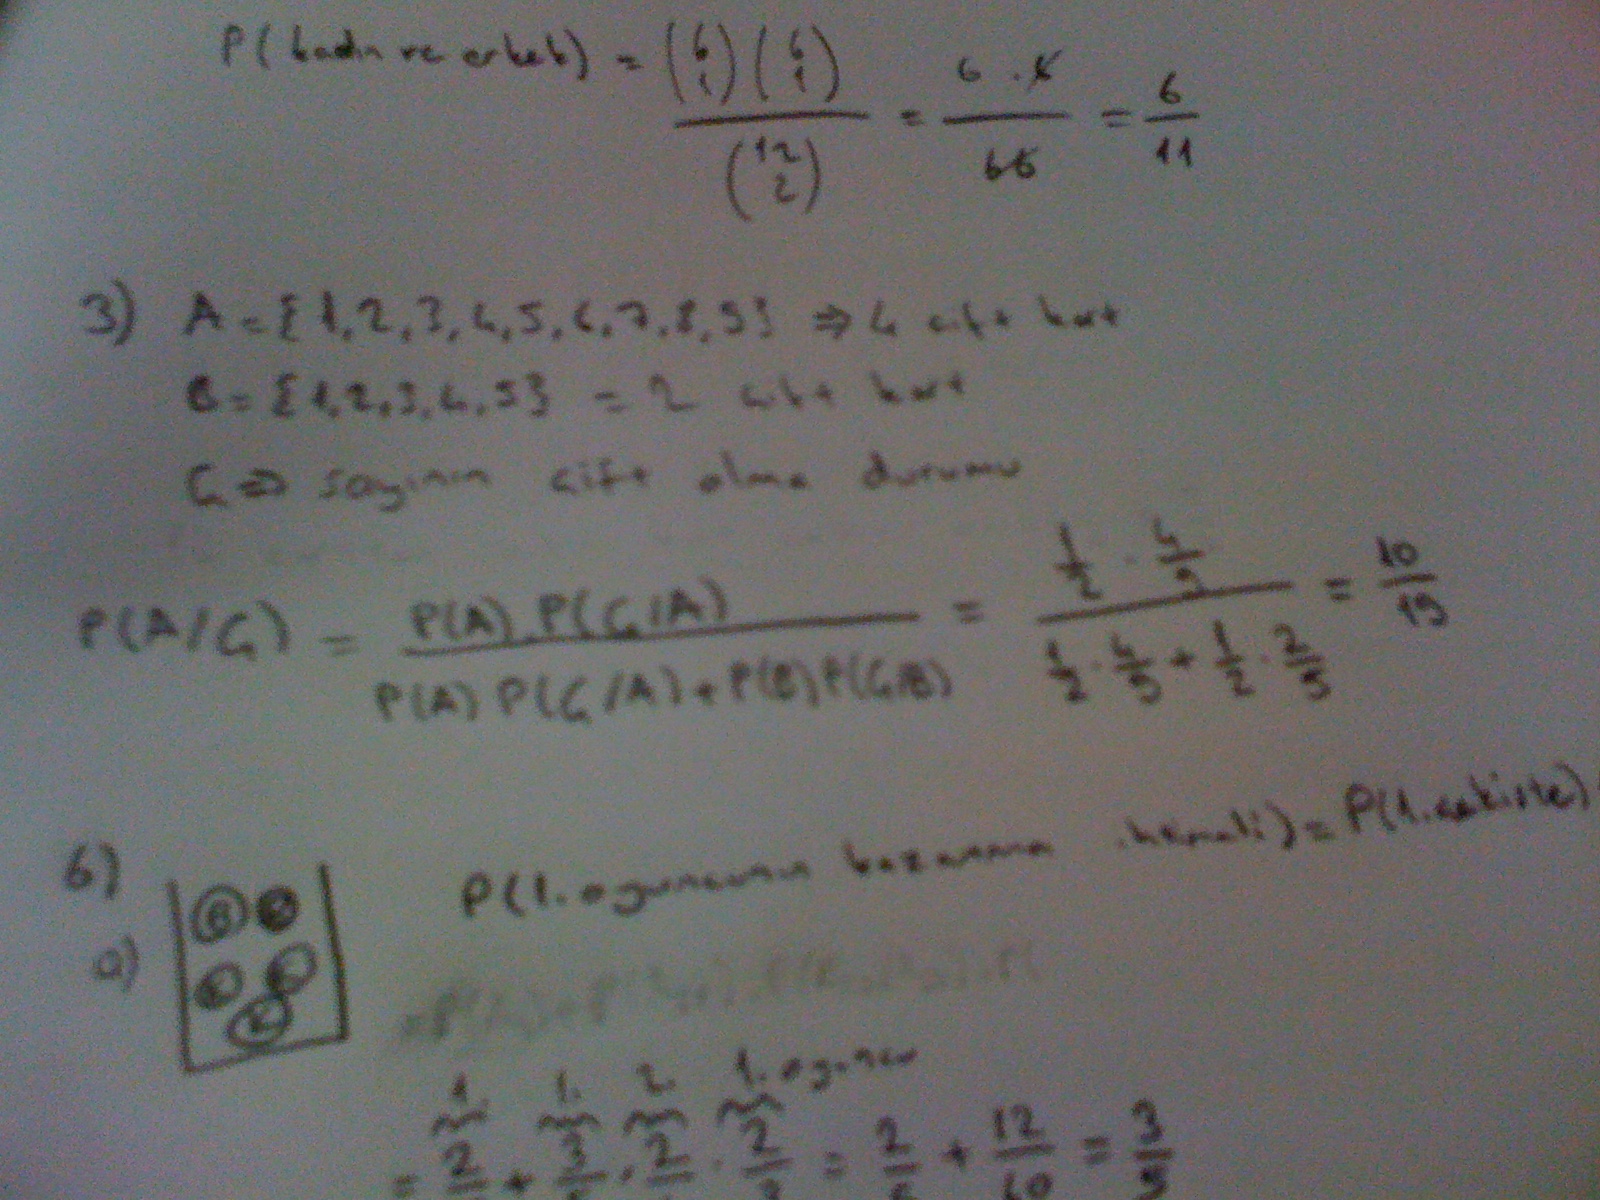 P(kadın ve erkek) = (6 1)(6 1) / (12 2) = 6 . 6 / 66 = 6/11
3) A = {1,2,3,4,5,6,7,8,9} ⇒ 4 çift kart
B = {1,2,3,4,5} = 2 çift kart
Ç ⇒ sayının çift olma durumu
P(A/Ç) = P(A).P(Ç/A) / P(A)P(Ç/A)+P(B)P(Ç/B) = 1/2 . 4/9 / 1/2 . 4/9 + 1/2 . 2/5 = 10/19
6)
P(1. oyuncunun kazanma ihtimali) = P(1. çekişte)
a) B
K
1. 1. 2 1. oyuncu
= 2 + 3 . 2 . 2 = 2 + 12/60 = 3/5